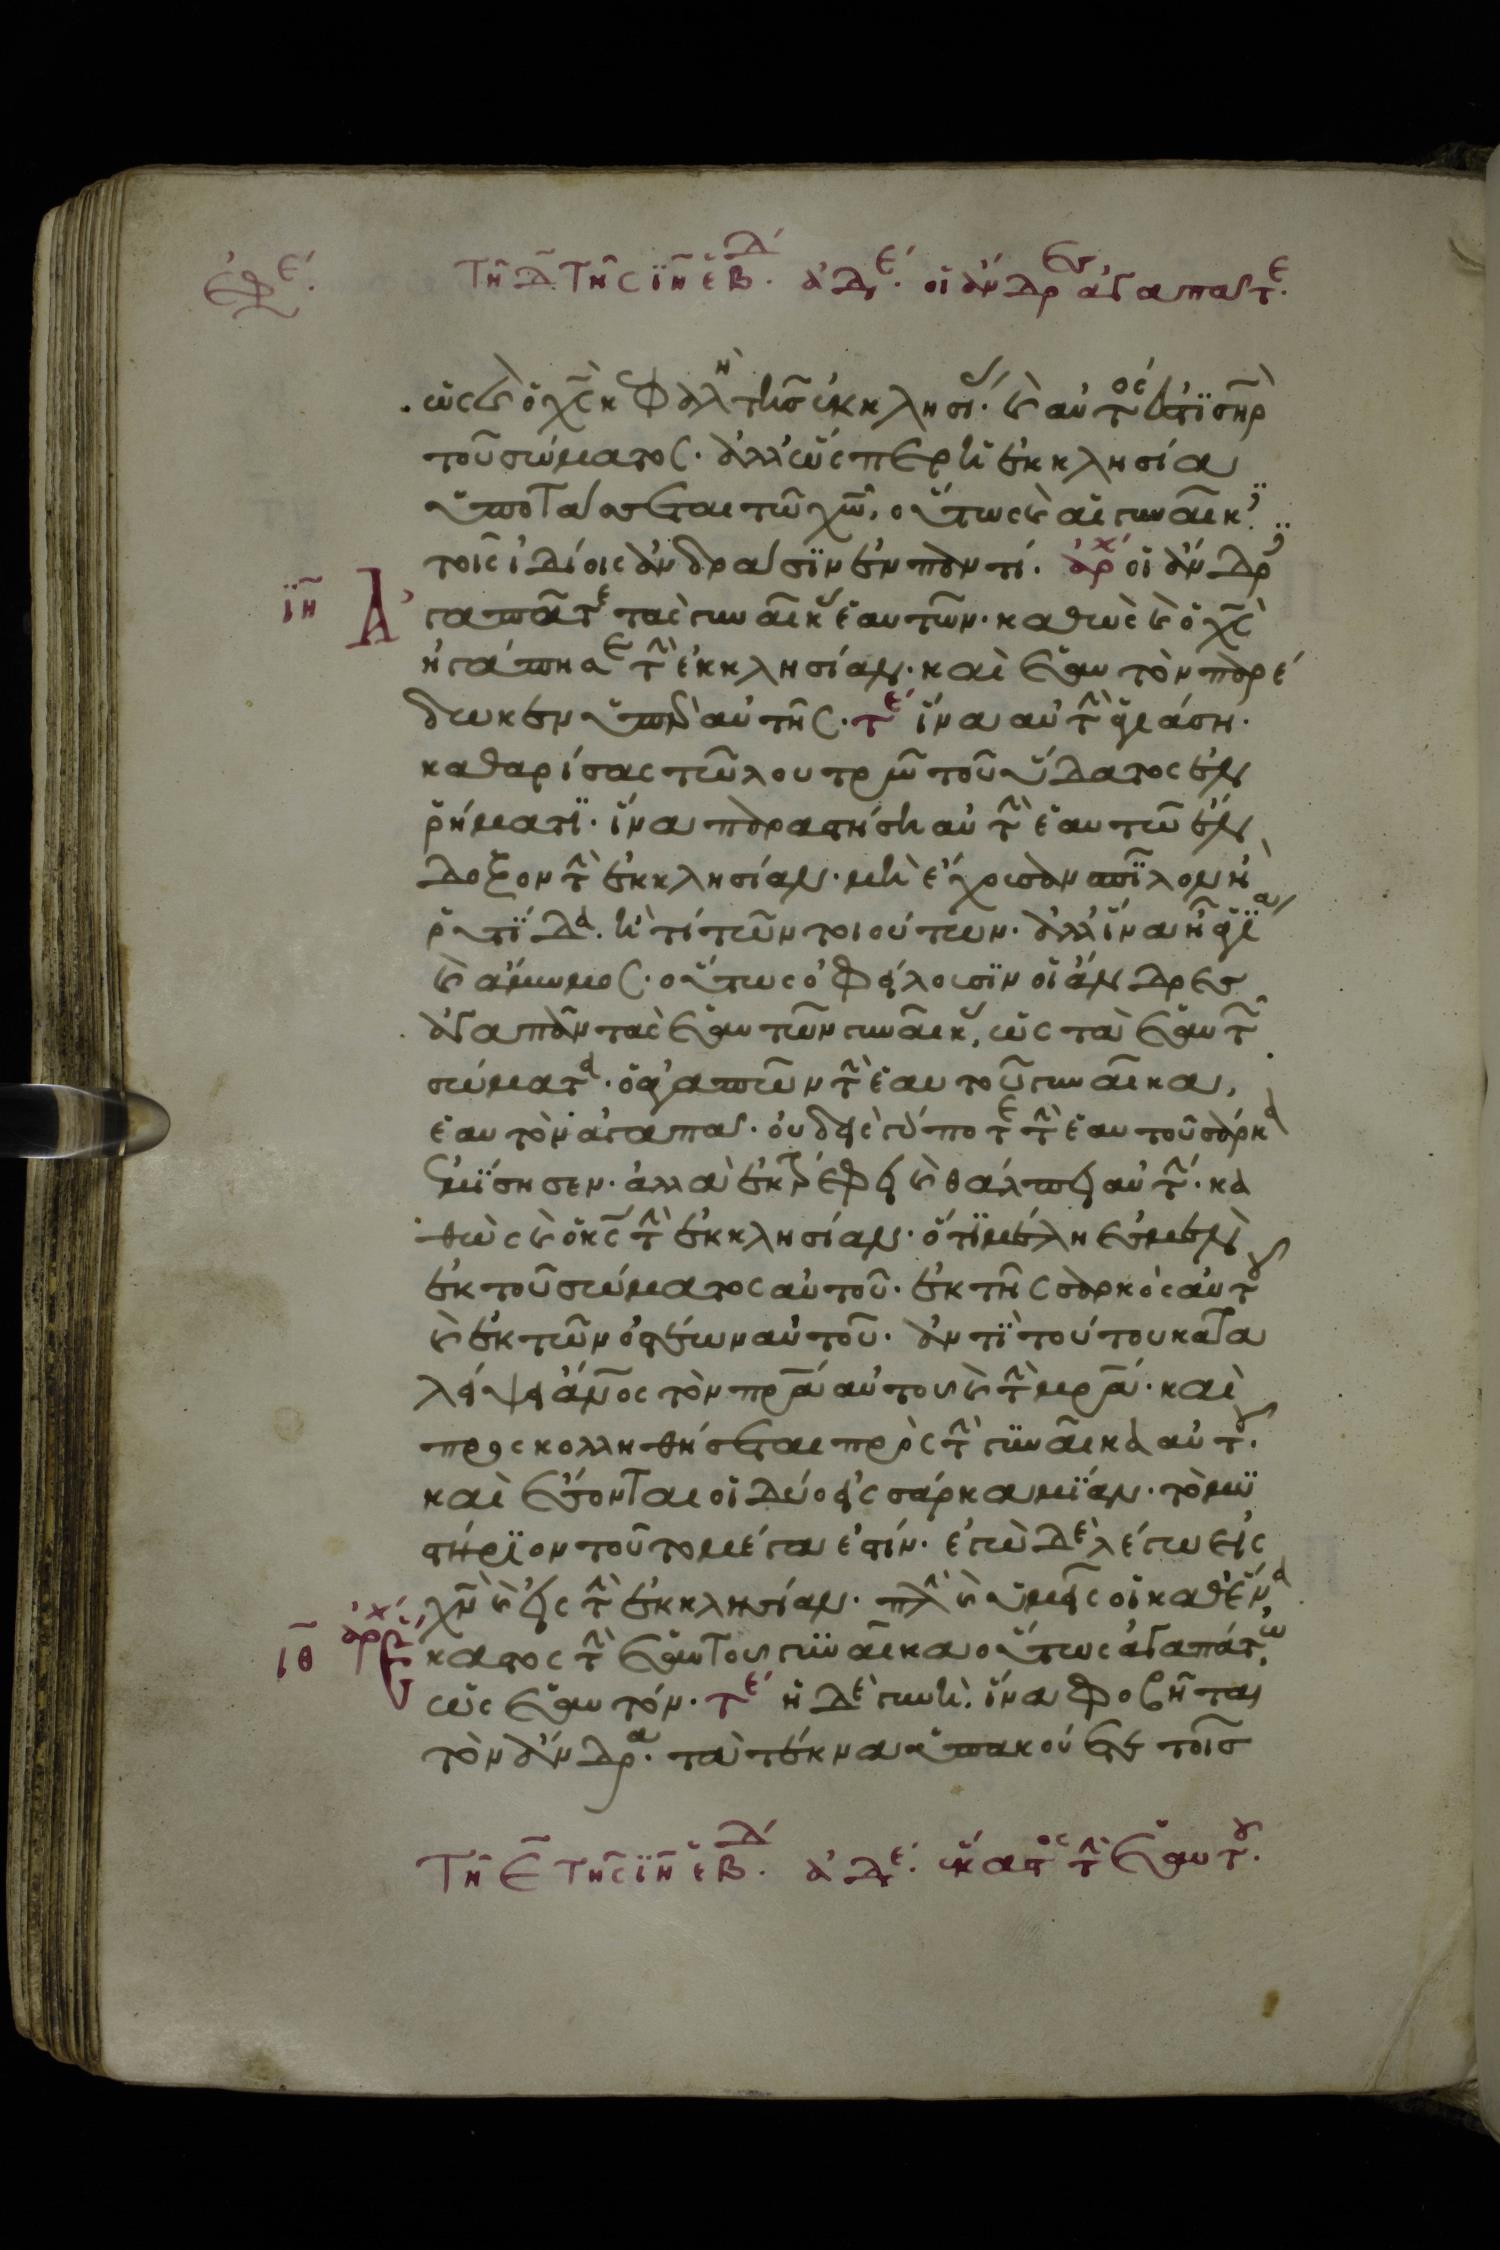 Τῆ δ̄ τῆς ιη̄ ἑβδ. ἀδε. οἱ ἄνδρες ἀγαπᾶτε.
ὡς καὶ ὁ χ̅ς̅ κεφαλὴ τῆς ἐκκλησίας· καὶ αὐτός ἐστι σ̅η̅ρ̅
τοῦ σώματος· ἀλλ' ὥσπερ ἡ ἐκκλησία
ὑποτάσσεται τῶ χ̅ω̅, οὕτως καὶ αἱ γυναῖκες
τοῖς ἰδίοις ἀνδράσιν ἐν παντί. ἀρχ οἱ ἄνδρες
ιη̄ Ἀγαπᾶτε τὰς γυναῖκας ἑαυτῶν· καθὼς καὶ ὁ χ̅ς̅
ἠγάπησε τὴν ἐκκλησίαν· καὶ ἑαυτὸν παρέ
δωκεν ὑπὲρ αὐτῆς· τε ἵνα αὐτὴν ἁγιάση·
καθαρίσας τῶ λουτρῶ τοῦ ὕδατος ἐν
ῥήματι· ἵνα παραστήση αὐτὴν ἑαυτῶ ἔν
δοξον τὴν ἐκκλησίαν· μὴ ἔχουσαν σπῖλον ἢ
ῥυτίδα· ἤ τι τῶν τοιούτων· ἀλλ' ἵνα ἦ ἁγία
καὶ ἄμωμος· οὕτως ὀφείλουσιν οἱ ἄνδρες
ἀγαπᾶν τὰς ἑαυτῶν γυναῖκας, ὡς τὰ ἑαυτῶν
σώματα· ὁ ἀγαπῶν τὴν ἑαυτοῦ γυναῖκα,
ἑαυτὸν ἀγαπᾶ· οὐδεὶς γάρ ποτε τὴν ἑαυτοῦ σάρκα
ἐμίσησεν· ἀλλὰ ἐκτρέφει καὶ θάλπει αὐτήν· κα
θὼς καὶ ὁ κ̅ς̅ τὴν ἐκκλησίαν· ὅτι μέλη ἐσμὲν
ἐκ τοῦ σώματος αὐτοῦ· ἐκ τῆς σαρκὸς αὐτοῦ
καὶ ἐκ τῶν ὀστέων αὐτοῦ· ἀντὶ τούτου κατα
λείψει ἄν̅ος̅ τὸν π̅ρ̅α̅ αὐτοῦ καὶ τὴν μ̅ρ̅α̅· καὶ
προσκολληθήσεται πρὸς τὴν γυναῖκα αὐτοῦ·
καὶ ἔσονται οἱ δύο εἰς σάρκα μίαν· τὸ μυ
στήριον τοῦτο μέγα ἐστίν· ἐγὼ δὲ λέγω εἰς
χ̅ν̅ καὶ εἰς τὴν ἐκκλησίαν· πλὴν καὶ ὑμεῖς οἱ καθ' ἕνα
ιθ̄ ἀρχ Ἕκαστος τὴν ἑαυτοῦ γυναῖκα οὕτως ἀγαπάτω,
ὡς ἑαυτόν· τε ἡ δὲ γυνὴ ἵνα φοβῆται
τὸν ἄνδρα· τὰ τέκνα ὑπακούετε τοῖς
Τῆ ε̄ τῆς ιη̄ ἑβδ. ἀδε. ἕκαστος τὴν ἑαυτοῦ.